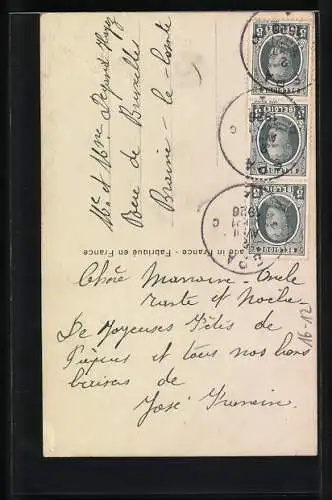 Mr et Mme Degand
Rue de Bruxelles
Braine-le-Comte
BELGIQUE BELGIË
5 5
BELGIQUE
5 5
BELGIQUE
5 5
1926
ade in France - Fabriqué en France
Chère Marraine - Oncle
Tante et
De Joyeuses Fêtes de
Pâques et tous nos bons
baisers de
José
16-12